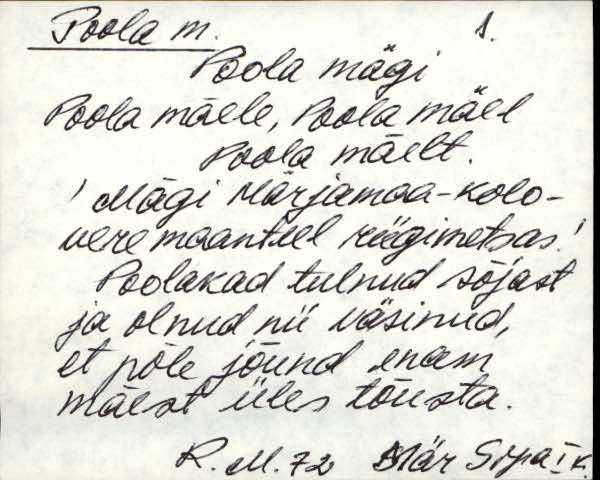 Poola m. 1.
Poola mägi
Poola mäele, Poola mäel
Poola mäelt.
! Mägi Märjamaa-Kolo-
vere maanteel riigimetsas!
Poolakad tulnud sõjast
ja olnud nii väsinud,
et põle jõund enam
mäest üles tõusta.
R. M. 72 Mär Sipa I k.